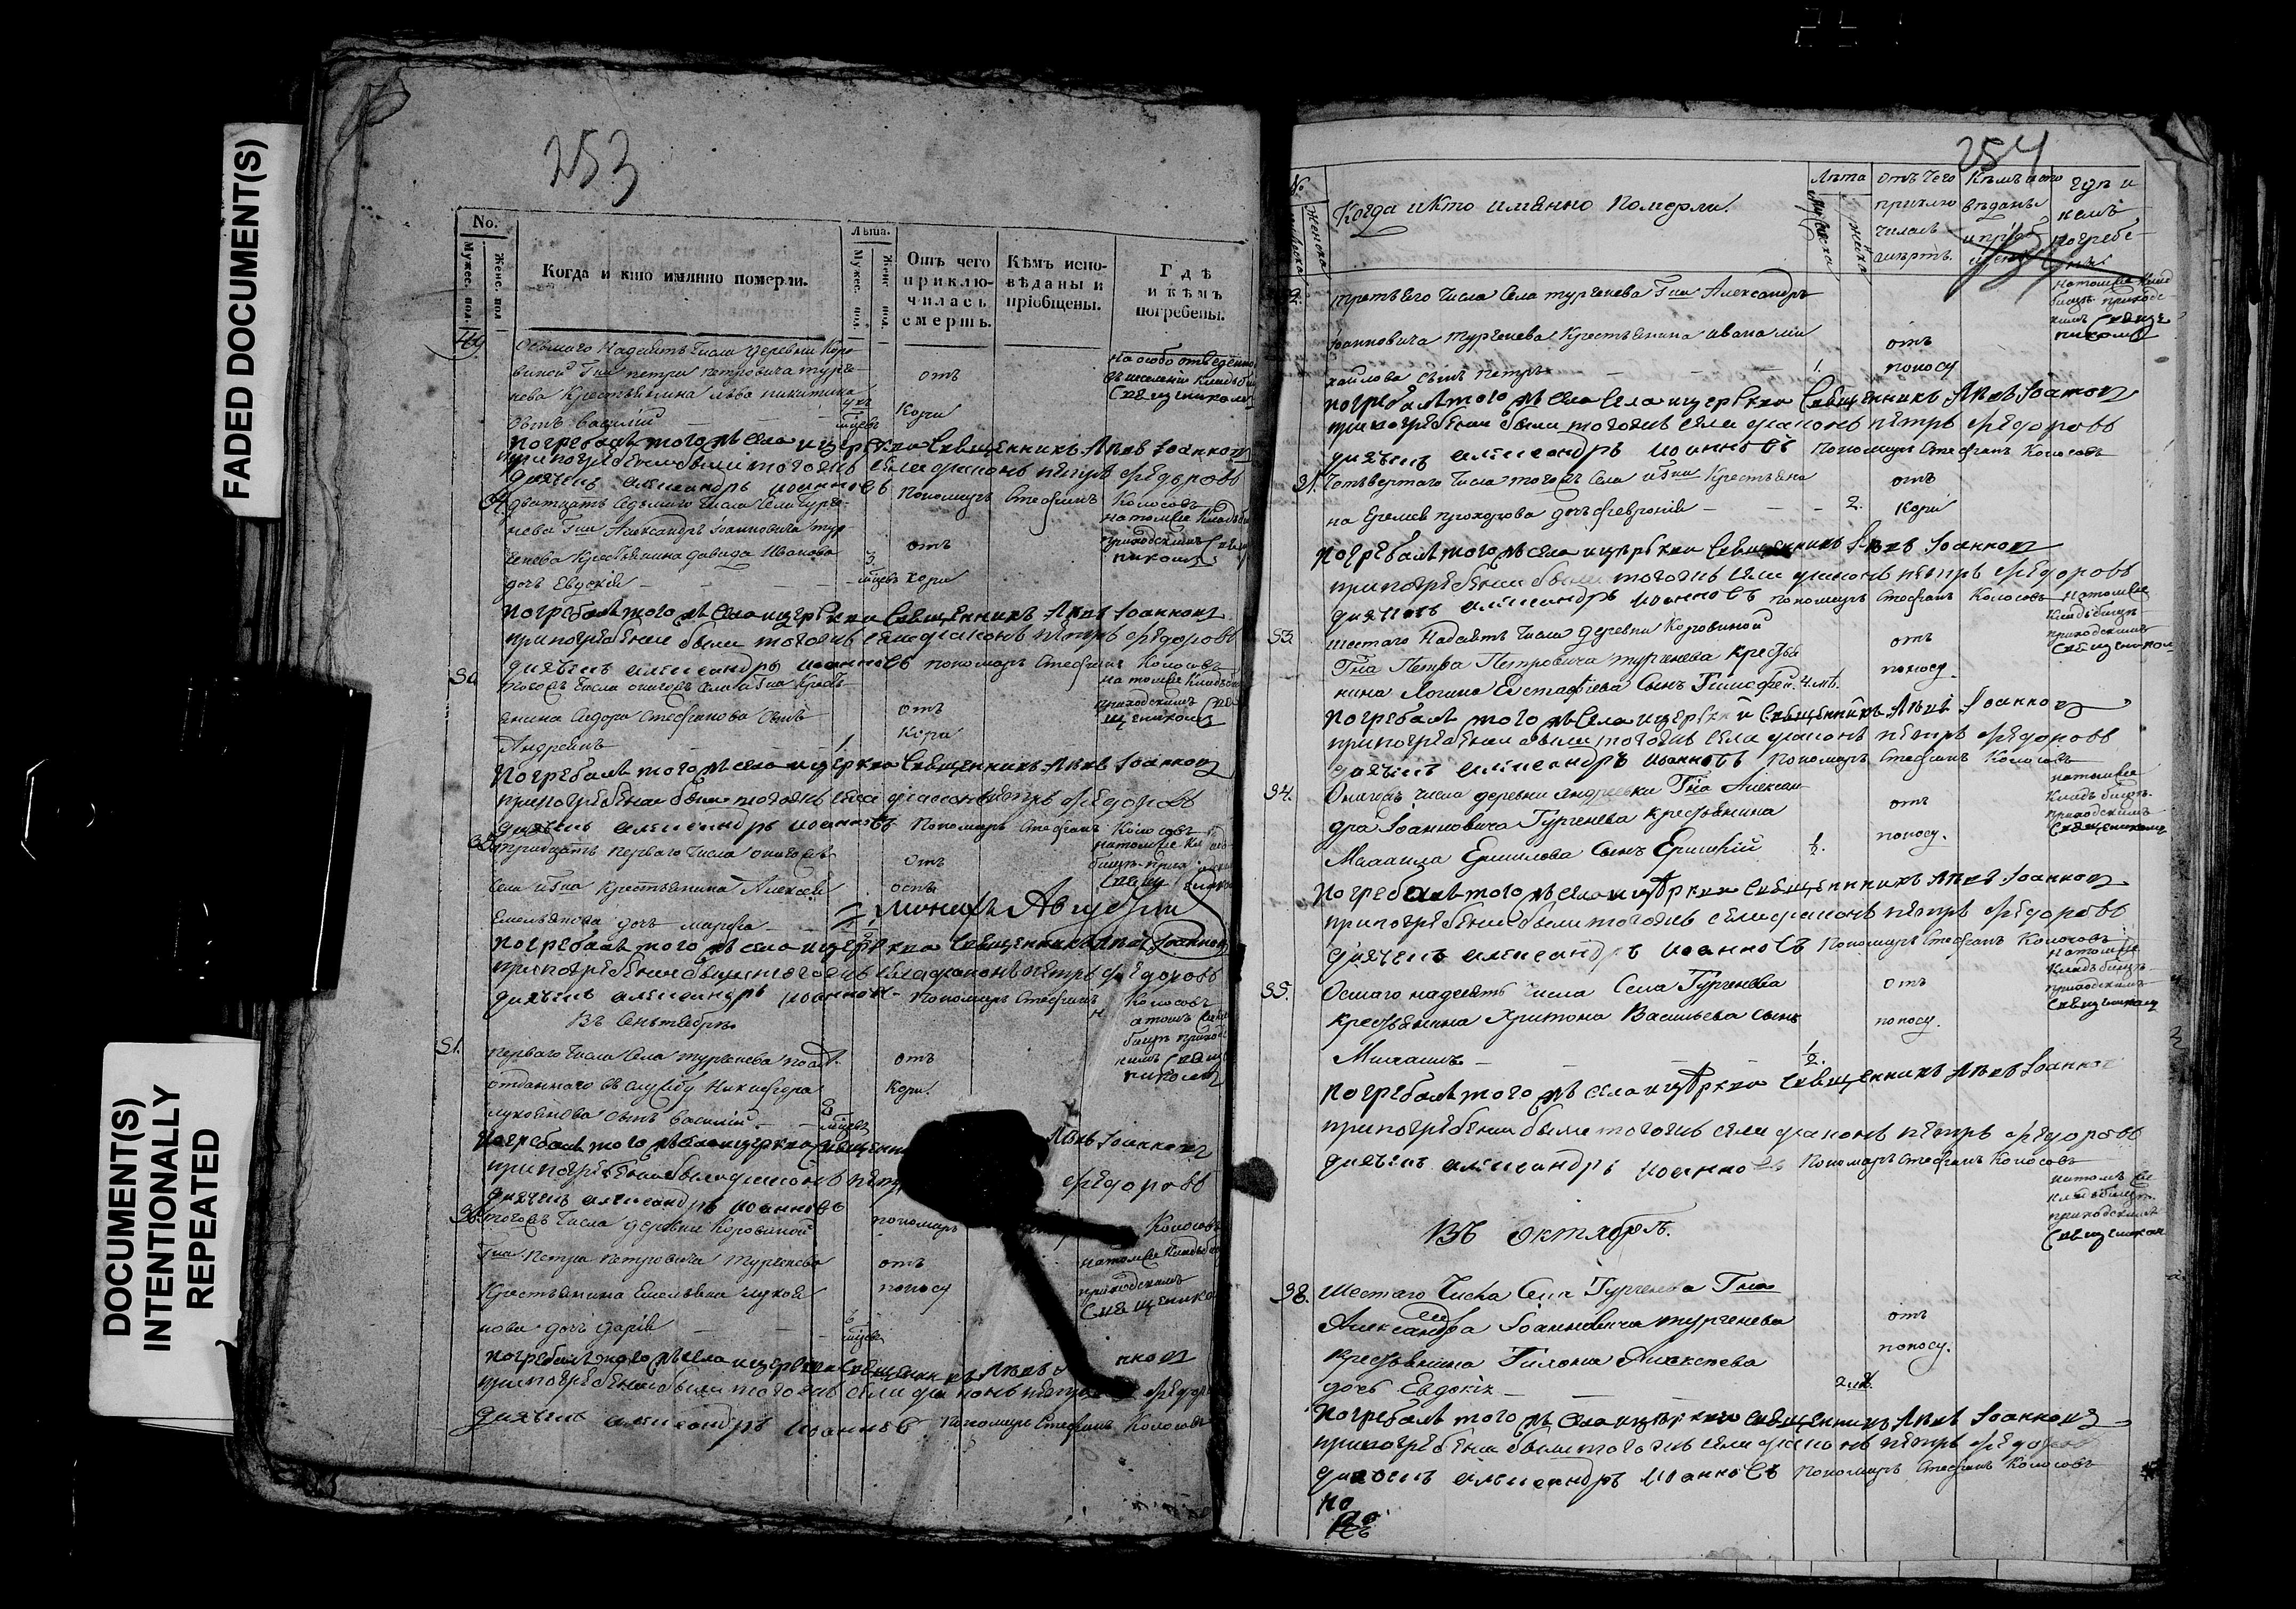 FADED DOCUMENT(S)
DOCUMENT(S)
INTENTIONALLY
REPEATED
253
No.
Мужес. пол.
Женс. пол
Когда и кто имянно померли.
Лѣта.
Мужес. пол
Женс. пол.
Отъ чего
приклю-
чилась
смерть.
Кѣмъ испо-
вѣданы и
пріобщены.
Гдѣ
и кѣмъ
погребены.
Осьмаго надесять числа деревни Коро
виной Гна Петра Петровича Турге
нева крестьянина Льва Никитина
сынъ Василій
отъ
кори
на особо отведенно
священикомъ
погребалъ того жъ села и церкви священникъ Левъ Іоанновъ
при погребении были тогожъ села диаконъ петръ федоровъ
диячекъ александръ иоанновъ Пономарь Стефанъ Колосовъ
двадцать седьмаго числа села Турге
нева Гна Александра Іоанновича Тур
генева крестьянина Давида Иванова
дочь
3
отъ
кори
на томже кладби
приходскимъ
погребалъ того жъ села и церкви священникъ Левъ Іоанновъ
при погребении были тогожъ села диаконъ петръ федоровъ
диячекъ александръ иоанновъ пономарь Стефанъ Колосовъ
тогожъ числа оногожъ села и Гна кресть
янина Сидора Стефанова сынъ
Андреянъ
1.
отъ
кори
на томже кладби
приходскимъ свя
щеникомъ
погребалъ того жъ села и церкви священникъ Левъ Іоанновъ
при погребении были тогожъ села диаконъ петръ федоровъ
диячекъ александръ иоанновъ Пономарь Стефанъ Колосовъ
тридцать перваго числа оногожъ
села и Гна крестьянина Алексея
Емельянова дочь марфа
отъ
оспы
погребалъ того жъ села и церкви священникъ Левъ Іоанновъ
при погребении были тогожъ села диаконъ петръ федоровъ
диячекъ александръ иоанновъ Пономарь Стефанъ Колосовъ
Въ Сентябрѣ
51.
перваго числа села Тургенева
отданнаго въ службу Никифора
сынъ Василій
отъ
кори.
погребалъ того жъ села и церкви священни Левъ Іоанновъ
при погребении были диаконъ петр федоровъ
диячекъ александръ иоанновъ
пономарь Колосовъ
тогожъ числа деревни Коровиной
Гна Петра Петровича Тургенева
крестьянина Емельяна
нова дочь Дарія
отъ
поносу
на томже кладби
приходскимъ
священико
погребалъ того жъ села и церкви священникъ Левъ
при погребении были тогожъ села диаконъ петръ
диячекъ александръ иоанновъ Пономарь Стефанъ Колосовъ
254
№
Женска
Когда и кто имянно померли.
Лѣта
мужеска
женска
отъ чего
приклю
чилась
смерть
Кѣмъ испо
вѣданы
гдѣ и
кемъ
погребе
ны
третьего числа села Тургенева Гна Александра
Іоанновича Тургенева крестьянина Ивана Ми
хайлова сынъ петръ
1.
отъ
поносу
погребалъ того жъ села церкви священникъ Левъ Іоанновъ
при погребении были тогожъ села диаконъ петръ федоровъ
диячекъ александръ иоанновъ Пономарь Стефанъ Колосовъ
четвертаго числа тогожъ села и Гна крестьяни
на Еремея Прохорова дочь Феврония
2.
отъ
кори
погребалъ того жъ села и церкви священникъ Левъ Іоанновъ
при погребении были тогожъ села диаконъ петръ федоровъ
диячекъ александръ иоанновъ пономарь Стефанъ Колосовъ
53.
шестаго надесять числа деревни Коровиной
Гна Петра Петровича Тургенева крестья
нина Логина Евстафьева сынъ Тимофей. 4. лѣт.
отъ
поносу.
на томже
кладбищѣ
приходскимъ
священикомъ
погребалъ того жъ села и церкви священникъ Левъ Іоанновъ
при погребении были тогожъ села диаконъ петръ федоровъ
диячекъ александръ иоанновъ Пономарь Стефанъ Колосовъ
54.
Оногожъ числа деревни Андреевки Гна Алексан
дра Іоанновича Тургенева крестьянина
Михаила Ермилова сынъ
1/2.
отъ
поносу.
на томже
кладбищѣ
приходскимъ
священикомъ
погребалъ того жъ села и церкви священникъ Левъ Іоанновъ
при погребении были тогожъ села диаконъ петръ федоровъ
диячекъ александръ иоанновъ Пономарь Стефанъ Колосовъ
55.
Осмаго надесять числа села Тургенева
крестьянина Харитона Васильева сынъ
Михаилъ
1/2.
отъ
поносу.
на томже
кладбищѣ
приходскимъ
священикомъ
погребалъ того жъ села и церкви священникъ Левъ Іоанно
при погребении были тогожъ села диаконъ петръ федоровъ
диячекъ александръ иоанновъ Пономарь Стефанъ Колосовъ
Въ Октябрѣ.
Шестаго числа села Тургенева Гна
Александра Іоанновича Тургенева
крестьянина Алексеева
дочь Евдокія
отъ
поносу.
кладбищѣ
приходскимъ
священикомъ
погребалъ того жъ села и церкви священникъ Левъ Іоанновъ
при погребении были тогожъ села диаконъ петръ федоровъ
диячекъ александръ иоанновъ Пономарь Стефанъ Колосовъ
по